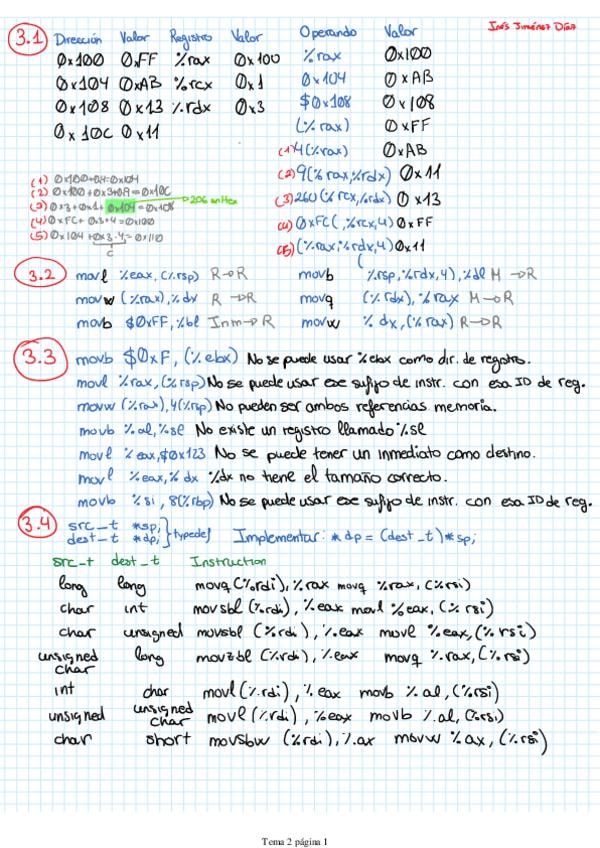 Inés Jiménez Díaz
3.1 Dirección Valor Registro Valor Operando Valor
0x100 0xFF %rax 0x100 %rax 0x100
0x104 0xAB %rcx 0x1 0x104 0xAB
0x108 0x13 %rdx 0x3 $0x108 0x108
0x10C 0x11 (%rax) 0xFF
(1) 4(%rax) 0xAB
(1) 0x100+0x4=0x104 (2) 9(%rax,%rdx) 0x11
(2) 0x100+0x3+0x9=0x10C
(3) 0x3+0x1+0x104=0x108 260 en Hex (3) 260(%rcx,%rdx) 0x13
(4) 0xFC+0x3*4=0x100 (4) 0xFC(,%rcx,4) 0xFF
(5) 0x104+0x3·4=0x110 (5) (%rax,%rdx,4) 0x11
C
3.2 movl %eax, (%rsp) R→R movb (%rsp,%rdx,4),%dl M→R
movw (%rax),%dx R→R movq (%rdx),%rax M→R
movb $0xFF,%bl Inm→R movw %dx,(%rax) R→R
3.3 movb $0xF, (%ebx) No se puede usar %ebx como dir. de registro.
movl %rax, (%rsp) No se puede usar ese sufijo de instr. con esa ID de reg.
movw (%rax),4(%rsp) No pueden ser ambos referencias memoria.
movb %al,%sl No existe un registro llamado %sl
movl %eax,$0x123 No se puede tener un inmediato como destino.
movl %eax,%dx %dx no tiene el tamaño correcto.
movb %si, 8(%rbp) No se puede usar ese sufijo de instr. con esa ID de reg.
3.4 src_t *sp;
dest_t *dp; } typedef Implementar: *dp = (dest_t)*sp;
src_t dest_t Instruction
long long movq (%rdi),%rax movq %rax, (%rsi)
char int movsbl (%rdi), %eax movl %eax, (%rsi)
char unsigned movsbl (%rdi), %eax movl %eax, (%rsi)
unsigned char long movzbl (%rdi), %eax movq %rax, (%rsi)
int char movl (%rdi), %eax movb %al, (%rsi)
unsigned unsigned char movl (%rdi), %eax movb %al, (%rsi)
char short movsbw (%rdi), %ax movw %ax, (%rsi)
Tema 2 página 1